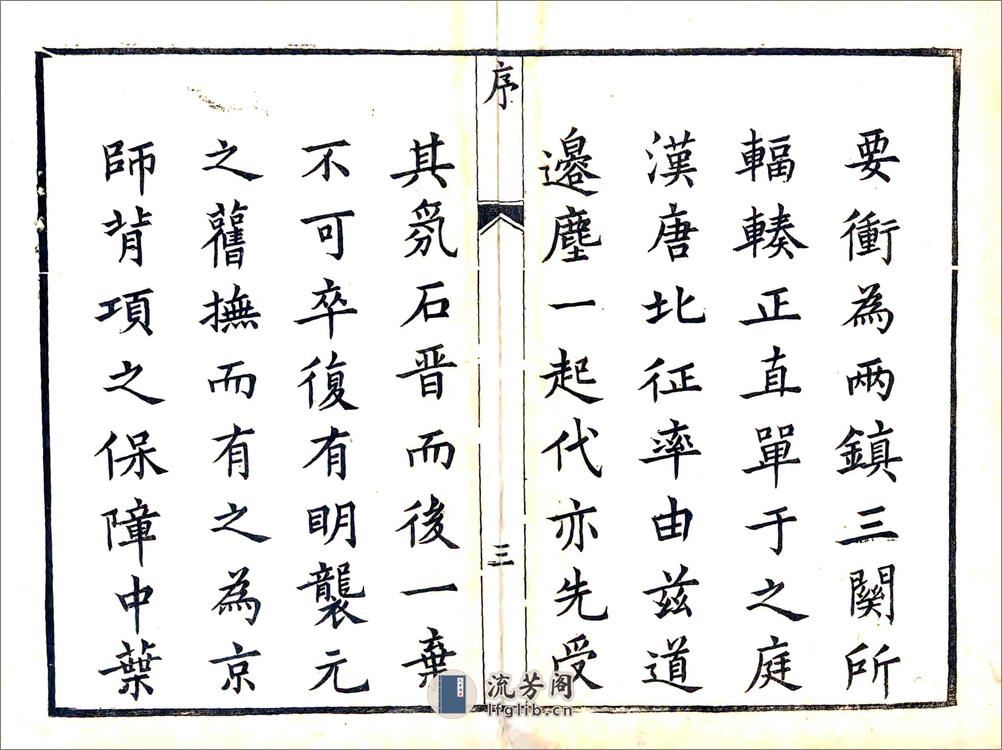 要衝為兩鎮三關所
輻輳正直單于之庭
漢唐北征率由茲道
邊塵一起代亦先受
序
三
其氛石晋而後一棄
不可卒復有明襲元
之舊撫而有之為京
師背項之保障中葉
流芳阁
lfglib.cn